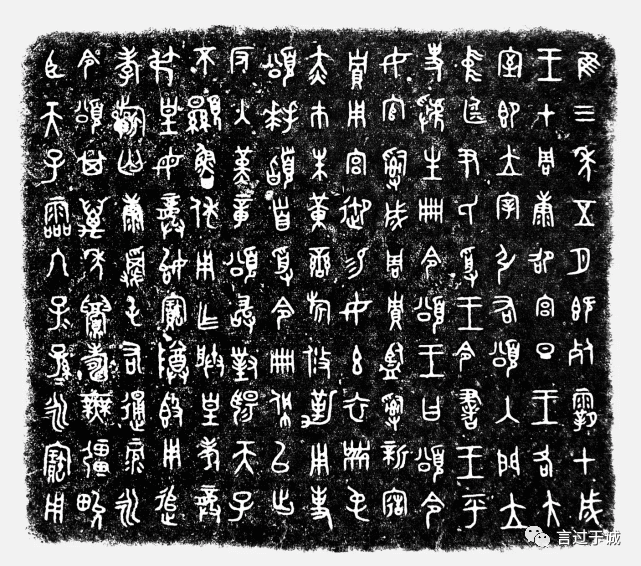 隹三年五月既死霸甲戌
王才周康卲宮旦王各大
室即立宰引右頌入門立
中廷尹氏受王令書王乎
史虢生冊令頌王曰頌令
女官𤔲成周貯監𤔲新造
貯用宮御易女玄衣黹屯
赤巿朱黃䜌旂攸勒用事
頌拜𩒨首受令冊佩以出
反入堇章頌敢對揚天子
不顯魯休用乍朕皇考龏
弔皇母龏始寶尊𣪘用追
孝𣄨匄康屯右通彔永
令頌其萬年眉壽無疆畯
臣天子霝冬子=孫=永寶用
言过于诚